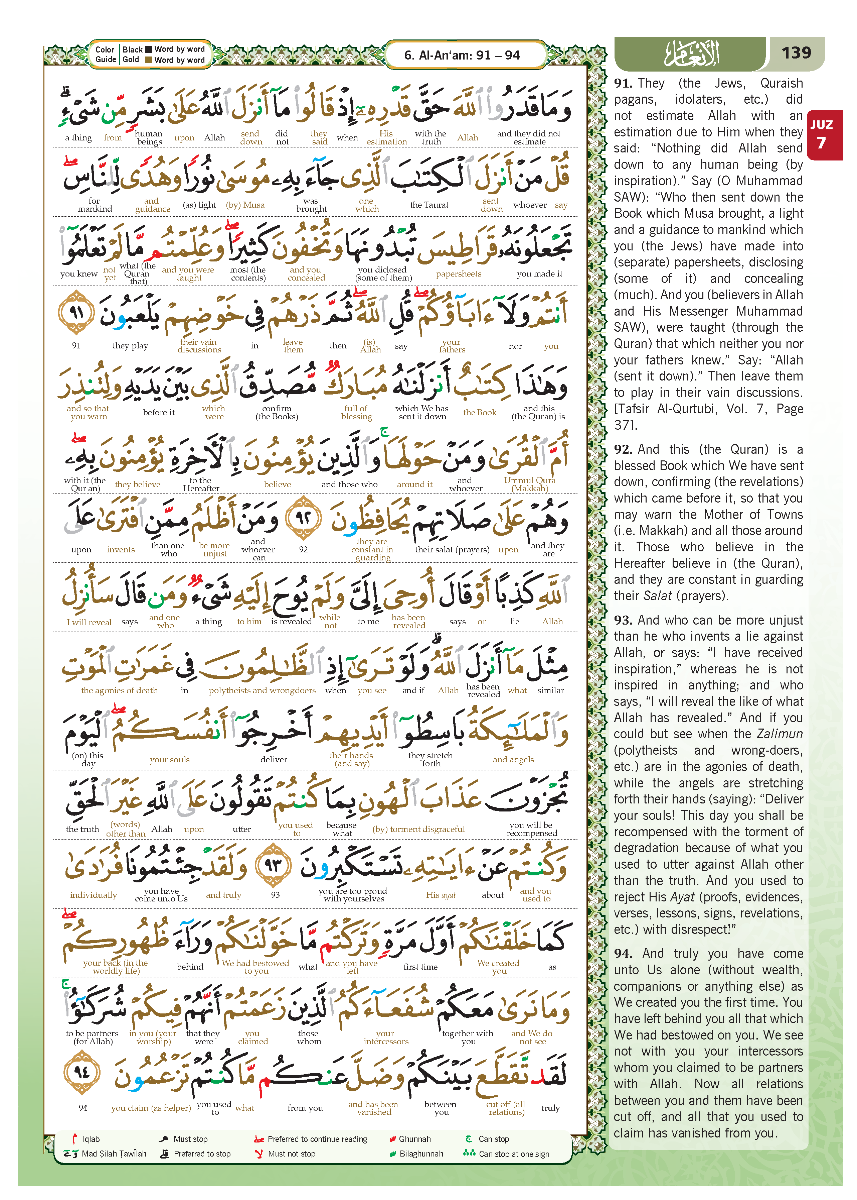 Color Guide | Black ■ Word by word
Gold ■ Word by word
6. Al-An'am: 91 – 94
الأنعام
139
JUZ
7
وَمَا قَدَرُوا۟ ٱللَّهَ حَقَّ قَدْرِهِۦٓ إِذْ قَالُوا۟ مَآ أَنزَلَ ٱللَّهُ عَلَىٰ بَشَرٍ مِّن شَىْءٍ ۗ
and they did not estimate | Allah | with the truth | His estimation | when | they said | did not | send down | Allah | upon | human beings | from | a thing
قُلْ مَنْ أَنزَلَ ٱلْكِتَـٰبَ ٱلَّذِى جَآءَ بِهِۦ مُوسَىٰ نُورًا وَهُدًى لِّلنَّاسِ ۖ
say | whoever | sent down | the Taurat | one which | was brought | (by) Musa | (as) light | and guidance | for mankind
تَجْعَلُونَهُۥ قَرَاطِيسَ تُبْدُونَهَا وَتُخْفُونَ كَثِيرًا ۖ وَعُلِّمْتُم مَّا لَمْ تَعْلَمُوٓا۟
you made it | papersheets | you diclosed (some of them) | and you concealed | most (the contents) | and you were taught | what (the Quran that) | not yet | you knew
أَنتُمْ وَلَآ ءَابَآؤُكُمْ ۖ قُلِ ٱللَّهُ ۖ ثُمَّ ذَرْهُمْ فِى خَوْضِهِمْ يَلْعَبُونَ ٩١
you | nor | your fathers | say | (is) Allah | then | leave them | in | their vain discussions | they play | 91
وَهَـٰذَا كِتَـٰبٌ أَنزَلْنَـٰهُ مُبَارَكٌ مُّصَدِّقُ ٱلَّذِى بَيْنَ يَدَيْهِ وَلِتُنذِرَ
and this (the Quran) is | the Book | which We has sent it down | full of blessing | confirm (the Books) | which were | before it | and so that you warn
أُمَّ ٱلْقُرَىٰ وَمَنْ حَوْلَهَا ۚ وَٱلَّذِينَ يُؤْمِنُونَ بِٱلْـَٔاخِرَةِ يُؤْمِنُونَ بِهِۦ ۖ
Ummul Qura (Makkah) | and whoever | around it | and those who | believe | to the Hereafter | they believe | with it (the Qur'an)
وَهُمْ عَلَىٰ صَلَاتِهِمْ يُحَافِظُونَ ٩٢ وَمَنْ أَظْلَمُ مِمَّنِ ٱفْتَرَىٰ عَلَى
and they are | upon | their salat (prayers) | they are constant in guarding | 92 | and whoever can | be more unjust | than one who | invents | upon
ٱللَّهِ كَذِبًا أَوْ قَالَ أُوحِىَ إِلَىَّ وَلَمْ يُوحَ إِلَيْهِ شَىْءٌ وَمَن قَالَ سَأُنزِلُ
Allah | lie | or | says | has been revealed | to me | while not | is revealed | to him | a thing | and one who | says | I will reveal
مِثْلَ مَآ أَنزَلَ ٱللَّهُ ۗ وَلَوْ تَرَىٰٓ إِذِ ٱلظَّـٰلِمُونَ فِى غَمَرَٰتِ ٱلْمَوْتِ
similar | what | has been revealed | Allah | and if | you see | when | polytheists and wrongdoers | in | the agonies of death
وَٱلْمَلَـٰٓئِكَةُ بَاسِطُوٓا۟ أَيْدِيهِمْ أَخْرِجُوٓا۟ أَنفُسَكُمُ ۖ ٱلْيَوْمَ
and angels | they stretch forth | their hands (and say) | deliver | your souls | (on) this day
تُجْزَوْنَ عَذَابَ ٱلْهُونِ بِمَا كُنتُمْ تَقُولُونَ عَلَى ٱللَّهِ غَيْرَ ٱلْحَقِّ
you will be recompensed | (by) torment disgraceful | because what | you used to | utter | upon | Allah | (words) other than | the truth
وَكُنتُمْ عَنْ ءَايَـٰتِهِۦ تَسْتَكْبِرُونَ ٩٣ وَلَقَدْ جِئْتُمُونَا فُرَٰدَىٰ
and you used to | about | His ayat | you are too proud with yourselves | 93 | and truly | you have come unto Us | individually
كَمَا خَلَقْنَـٰكُمْ أَوَّلَ مَرَّةٍ وَتَرَكْتُم مَّا خَوَّلْنَـٰكُمْ وَرَآءَ ظُهُورِكُمْ ۖ
as | We created you | first time | and you have left | what | We had bestowed to you | behind | your back (in the worldly life)
وَمَا نَرَىٰ مَعَكُمْ شُفَعَآءَكُمُ ٱلَّذِينَ زَعَمْتُمْ أَنَّهُمْ فِيكُمْ شُرَكَـٰٓؤُا۟ ۚ
and We do not see | together with you | your intercessors | those whom | you claimed | that they were | in you (your worship) | to be partners (for Allah)
لَقَد تَّقَطَّعَ بَيْنَكُمْ وَضَلَّ عَنكُم مَّا كُنتُمْ تَزْعُمُونَ ٩٤
truly | cut off (al relations) | between you | and has been vanished | from you | what | you used to | you claim (as helper) | 94
Iqlab | Must stop | Preferred to continue reading | Ghunnah | Can stop
Mad Silah Tawilah | Preferred to stop | Must not stop | Bilaghunnah | Can stop at one sign
91. They (the Jews, Quraish
pagans, idolaters, etc.) did
not estimate Allah with an
estimation due to Him when they
said: "Nothing did Allah send
down to any human being (by
inspiration)." Say (O Muhammad
SAW): "Who then sent down the
Book which Musa brought, a light
and a guidance to mankind which
you (the Jews) have made into
(separate) papersheets, disclosing
(some of it) and concealing
(much). And you (believers in Allah
and His Messenger Muhammad
SAW), were taught (through the
Quran) that which neither you nor
your fathers knew." Say: "Allah
(sent it down)." Then leave them
to play in their vain discussions.
[Tafsir Al-Qurtubi, Vol. 7, Page
37].
92. And this (the Quran) is a
blessed Book which We have sent
down, confirming (the revelations)
which came before it, so that you
may warn the Mother of Towns
(i.e. Makkah) and all those around
it. Those who believe in the
Hereafter believe in (the Quran),
and they are constant in guarding
their Salat (prayers).
93. And who can be more unjust
than he who invents a lie against
Allah, or says: "I have received
inspiration," whereas he is not
inspired in anything; and who
says, "I will reveal the like of what
Allah has revealed." And if you
could but see when the Zalimun
(polytheists and wrong-doers,
etc.) are in the agonies of death,
while the angels are stretching
forth their hands (saying): "Deliver
your souls! This day you shall be
recompensed with the torment of
degradation because of what you
used to utter against Allah other
than the truth. And you used to
reject His Ayat (proofs, evidences,
verses, lessons, signs, revelations,
etc.) with disrespect!"
94. And truly you have come
unto Us alone (without wealth,
companions or anything else) as
We created you the first time. You
have left behind you all that which
We had bestowed on you. We see
not with you your intercessors
whom you claimed to be partners
with Allah. Now all relations
between you and them have been
cut off, and all that you used to
claim has vanished from you.